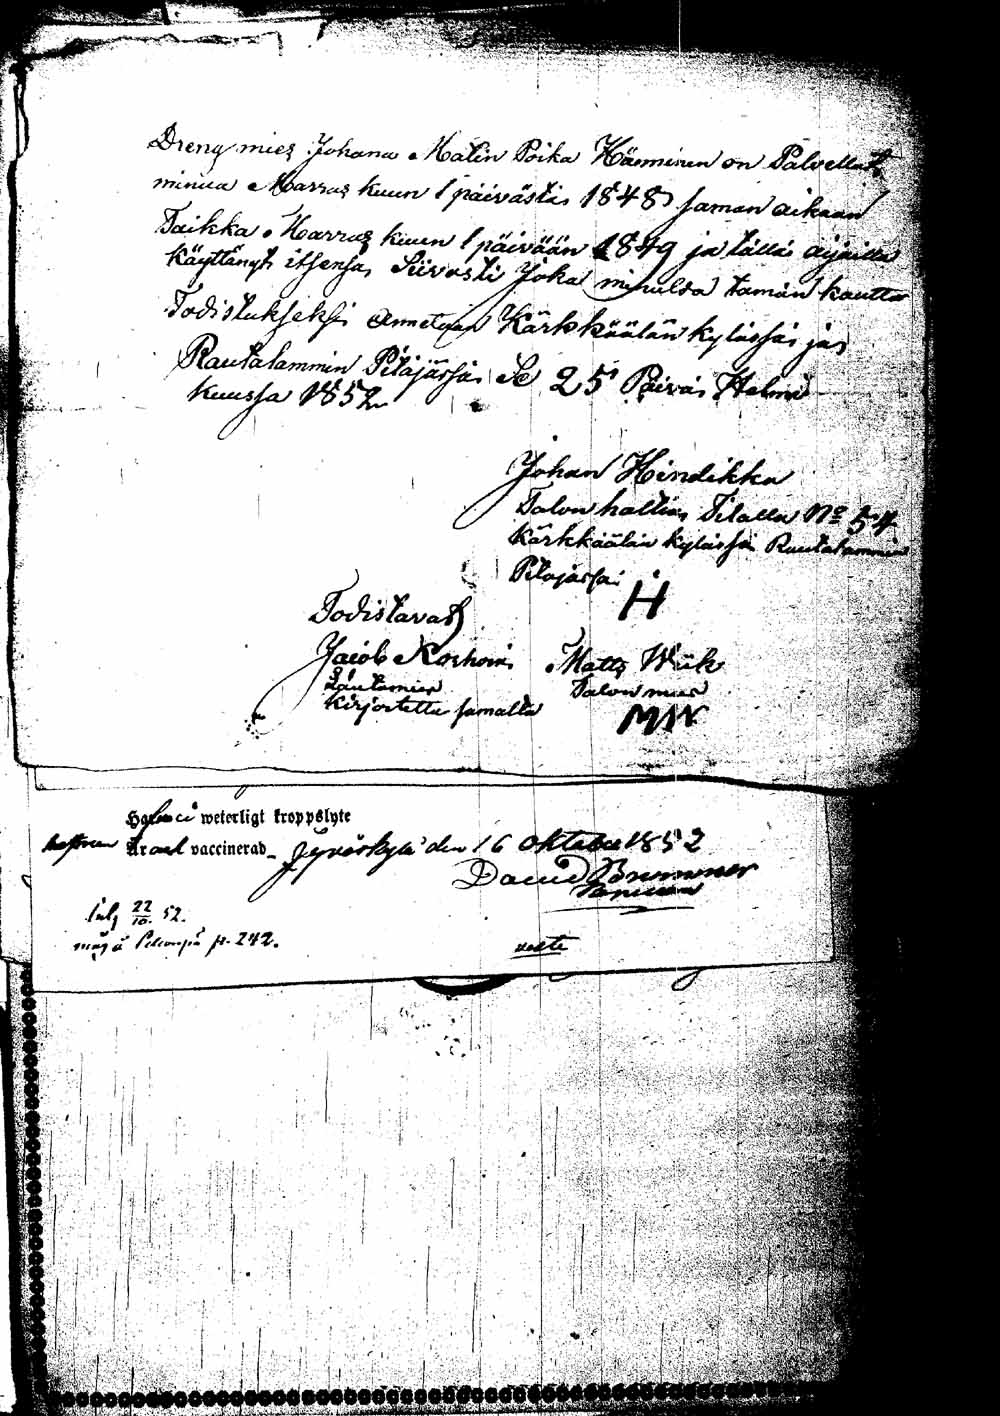 Dreng mies Johana Matin Poika Hänninen on Palvellut
minua Marras kuun 1 päivästä 1848 saman aikaan
Taikka Marras kuun 1 päivään 1849 ja tällä aijalla
käyttänyt itsensä Siivosti Joka minulda tamän kautta
Todistukseksi Annetaan Kärkkäälän kylässä ja
Rautalammin Pitäjässä Se 25 Päivä Helmi
kuussa 1852
Johan Hindikka
Talon haltia Tilalla No 54
Kärkkäälän kylässä Rautalammin
Pitäjässä
H
Todistavat
Jacob Matts Wiik
Lautamies Talon mies
kirjoitettu samalta MW
weterligt kroppslyte
Är vaccinerad Jyväskylä den 16 Oktober 1852
David Brummer
22/10 52.
p. 242.